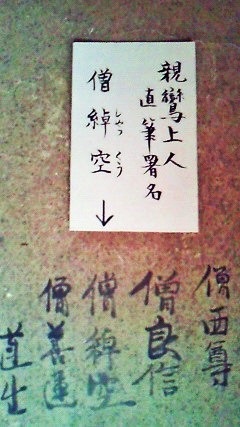 親鸞上人
直筆署名
僧綽空
しゃっくう
↓
僧西尊
僧良信
僧綽空
僧善蓮